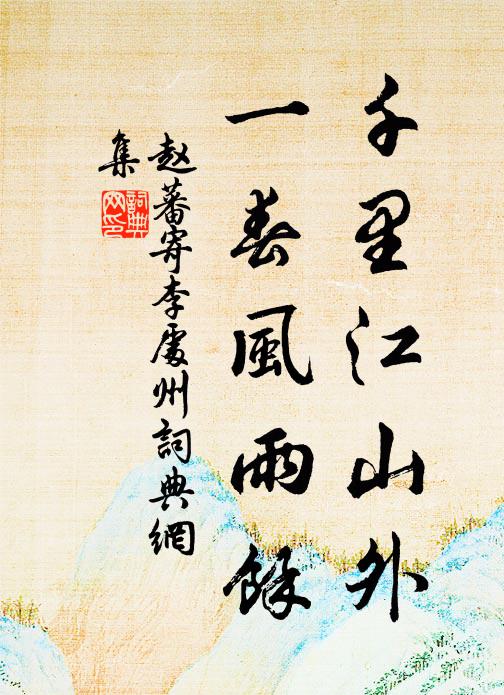 千里江山外
一春風雨餘
赵蕃寄李處州詞典網
集
詞典
网印